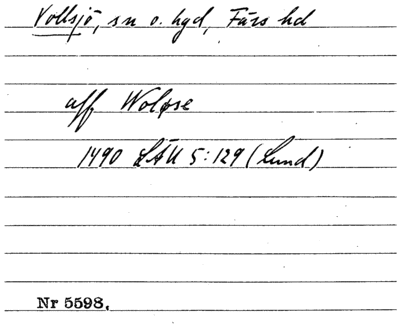 Vollsjö, sn o. hgd, Färs hd
aff Woløse
1490 LÄU 5:129 (Lund)
Nr 5598.